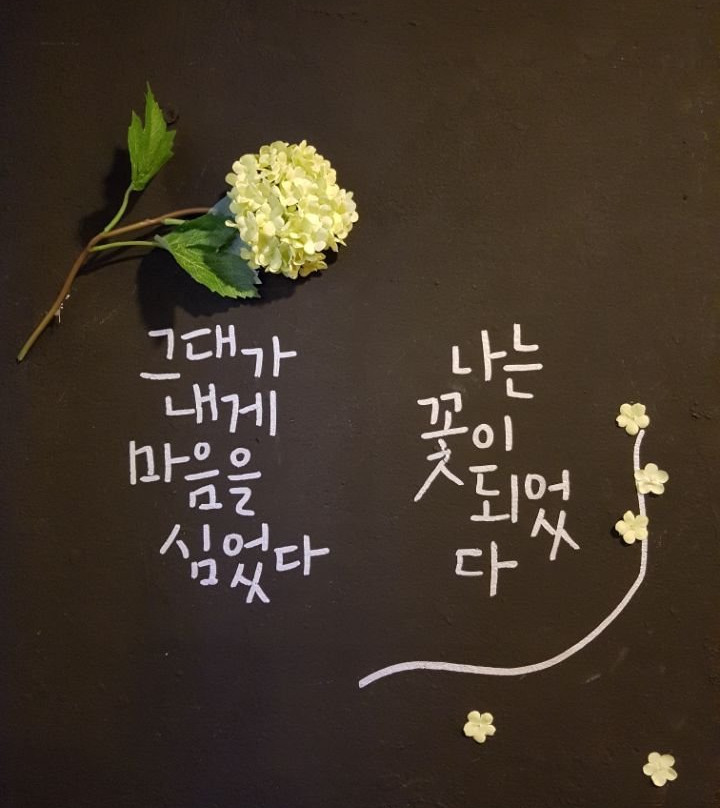 그대가
내게
마음을
심었다
나는
꽃이
되었
다